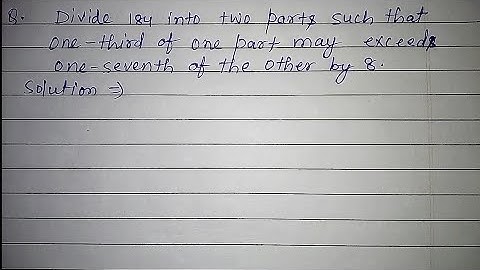 Q. Divide 184 into two parts such that
one-third of one part may exceeds
one-seventh of the other by 8.
Solution ⇒